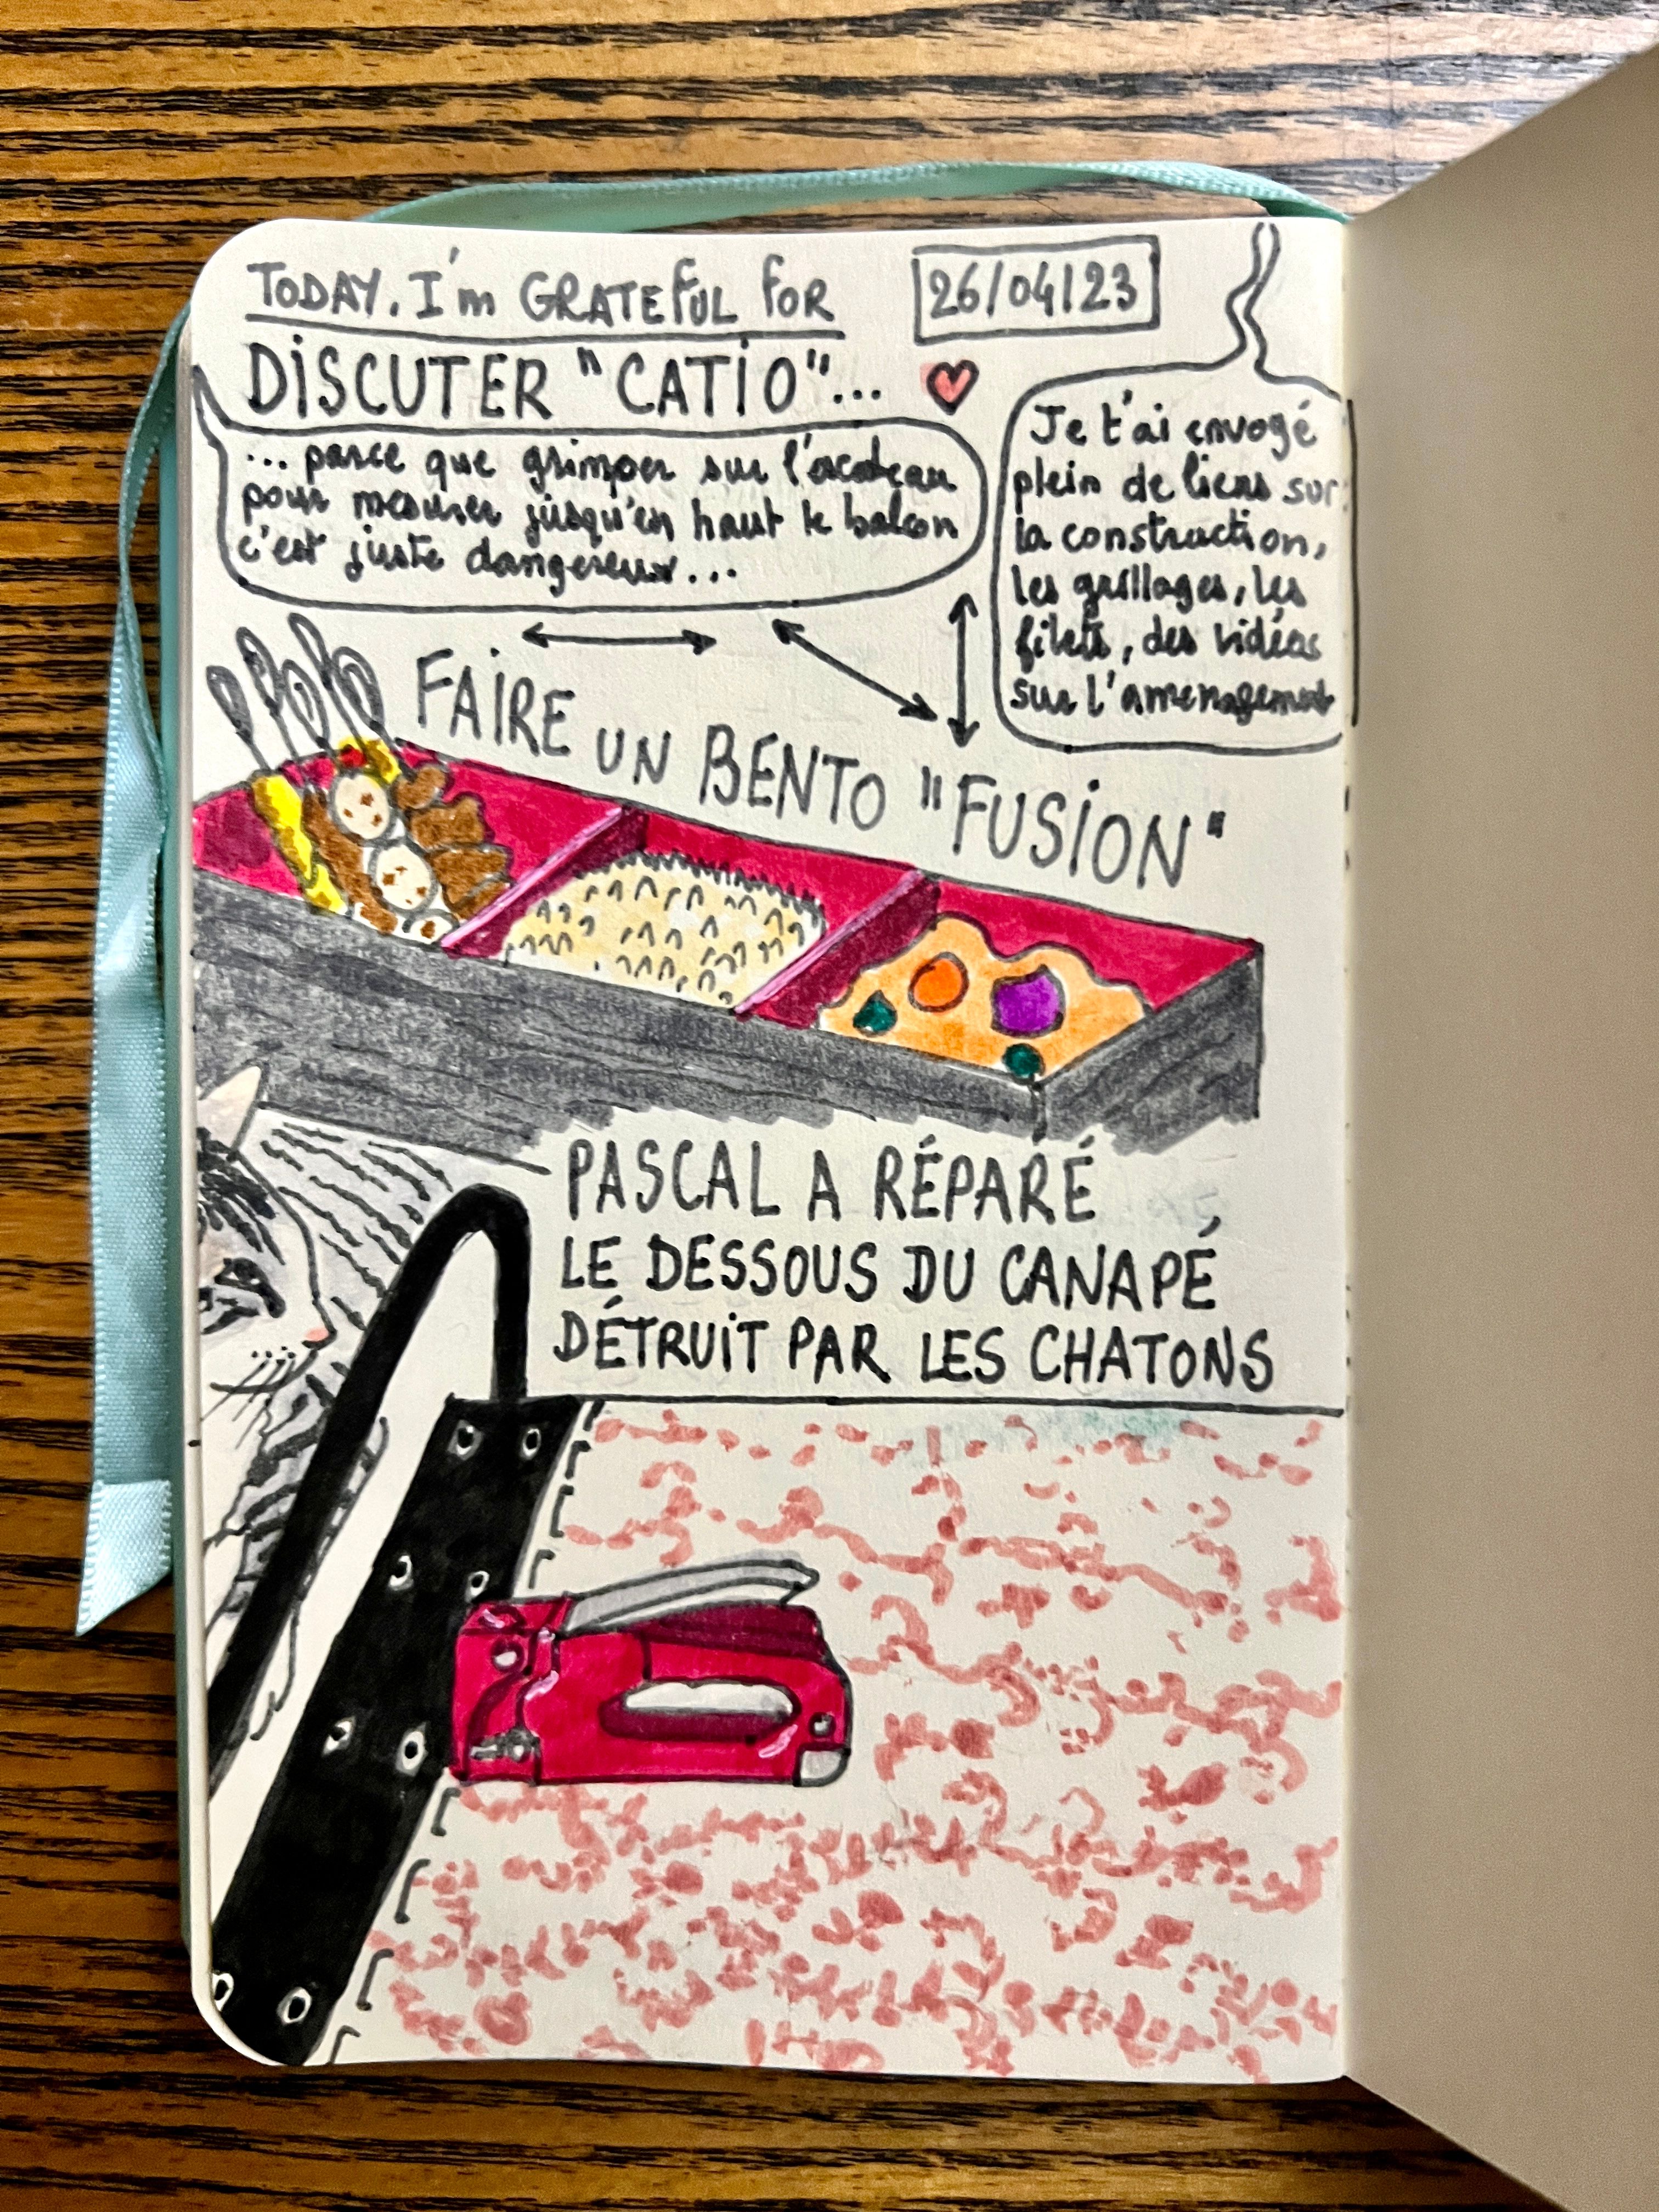 TODAY. I'm GRATEFUL FOR
26/04/23
DISCUTER "CATIO"...
... parce que grimper sur l'escabeau
pour mesurer jusqu'en haut le balcon
c'est juste dangereux...
Je t'ai envoyé
plein de liens sur
la construction,
les grillages, les
filets, des vidéos
sur l'amenagement
FAIRE UN BENTO "FUSION"
PASCAL A RÉPARÉ
LE DESSOUS DU CANAPÉ
DÉTRUIT PAR LES CHATONS